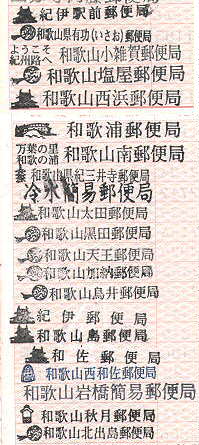 紀伊駅前郵便局
和歌山県有功(いさお)郵便局
ようこそ
紀州路へ
和歌山小雑賀郵便局
和歌山塩屋郵便局
和歌山西浜郵便局
和歌浦郵便局
万葉の里
和歌の浦
和歌山南郵便局
和歌山県紀三井寺郵便局
冷水簡易郵便局
和歌山太田郵便局
和歌山黒田郵便局
和歌山天王郵便局
和歌山加納郵便局
和歌山鳥井郵便局
紀伊郵便局
和歌山島郵便局
和佐郵便局
和歌山西和佐郵便局
和歌山岩橋簡易郵便局
和歌山秋月郵便局
和歌山北出島郵便局